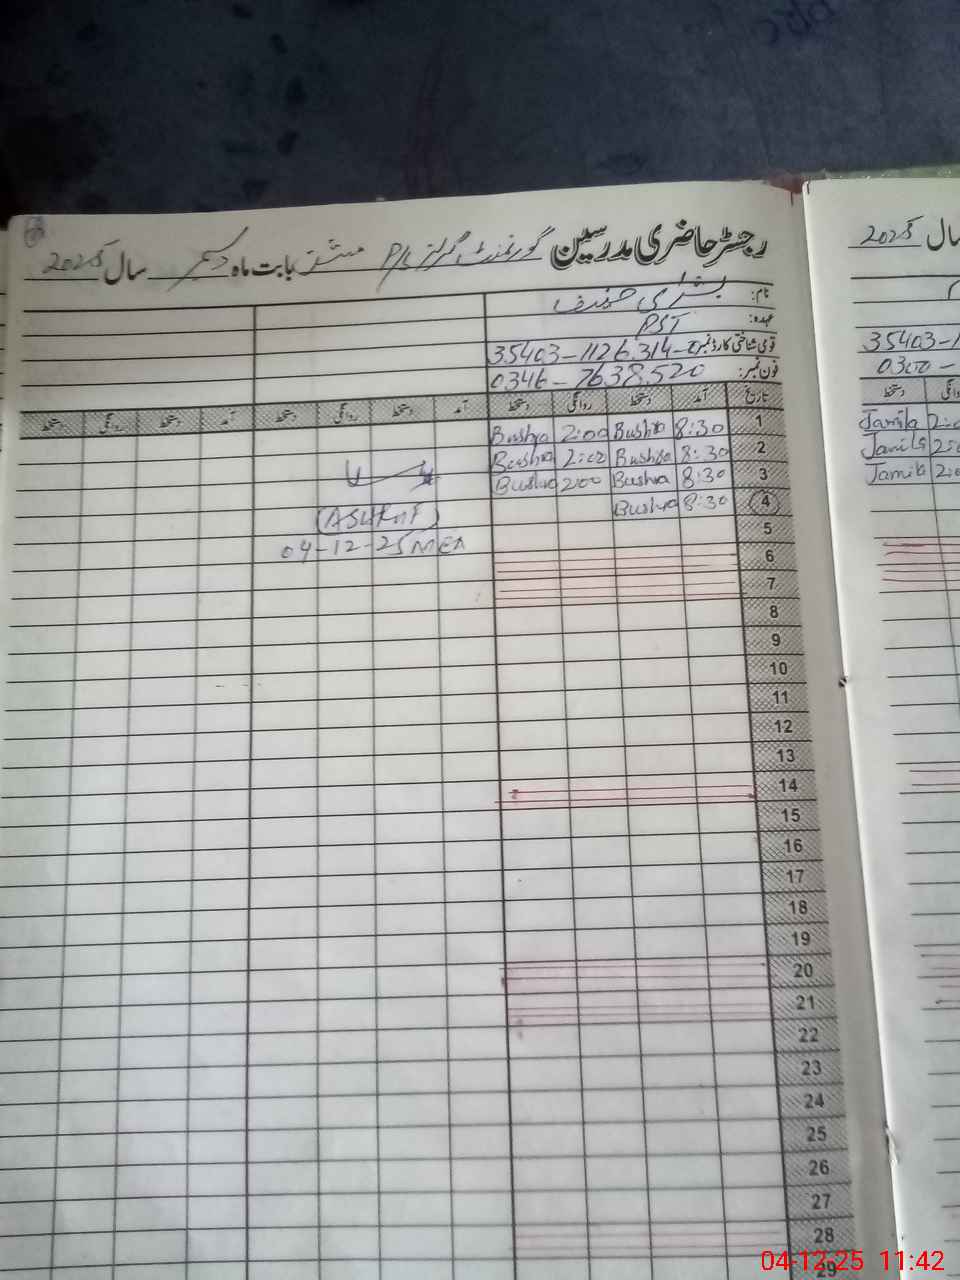 رجسٹر حاضری مدرسین گورنمنٹ گرلز P/S بابت ماہ دسمبر سال 2025
نام: بشریٰ حنیف
عہدہ: PST
قومی شناختی کارڈ نمبر: 35403-1126314-0
فون نمبر: 0346-7638520
تاریخ آمد دستخط روانگی دستخط آمد دستخط روانگی دستخط آمد دستخط روانگی دستخط
1 8:30 Bushra 2:00 Bushra
2 8:30 Bushra 2:00 Bushra
3 8:30 Bushra 2:00 Bushra
4 8:30 Bushra
(ASHRAF)
5
04-12-25 MEA
6
7
8
9
10
11
12
13
14
15
16
17
18
19
20
21
22
23
24
25
26
27
28
29
سال 2025
35403-1
0300-
دستخط
Jamila 2:0
Jamila 2:0
Jamila 2:0
04-12-25 11:42